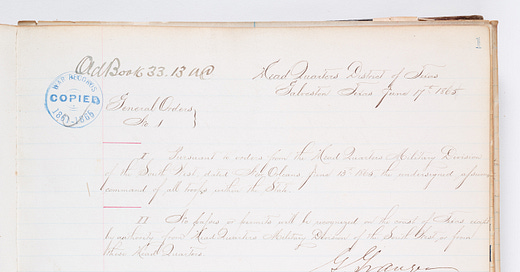 Old Book 33. 13 AC
Head Quarters District of Texas
Galveston Texas June 17th 1865
WAR RECORDS
COPIED
1861-1865
General Orders
No 1
I Pursuant to orders from the Head Quarters Military Division
of the South West, dated New Orleans June 13th 1865 the undersigned assumes
command of all troops within the State
II No passes or permits will be recognized on the coast of Texas except
by authority from Head Quarters Military Division of the South West, or from
these Head Quarters.
G Granger